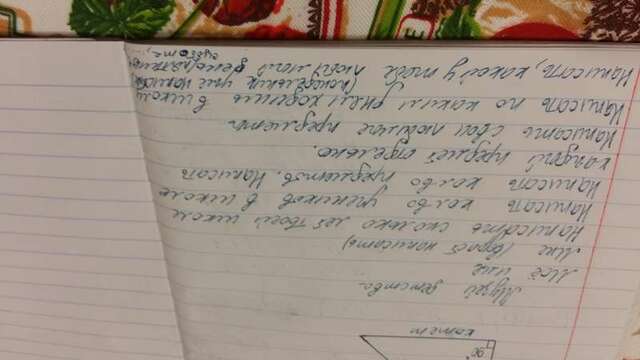 90°
катет
Музей детства
Моё имя
Мне (возраст написать)
Написать сколько лет твоей школе
Написать кол-во учеников в школе
Написать кол-во предметов. Написать
каждый предмет отдельно.
Написать свои любимые предметы
Написать по каким дням ходишь в школу
(понедельник уже написан)
Написать, какой у тебя любимый день (пятница
суббота,